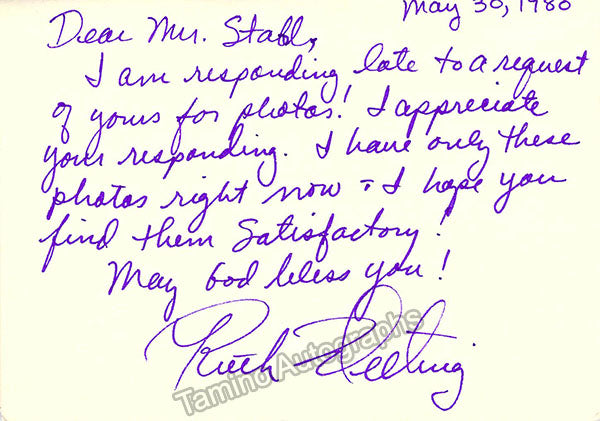 May 30, 1980
Dear Mr. Stahl,
I am responding late to a request
of yours for photos! I appreciate
your responding. I have only these
photos right now - I hope you
find them satisfactory!
May God bless you!
Ruth
Tamino Autographs